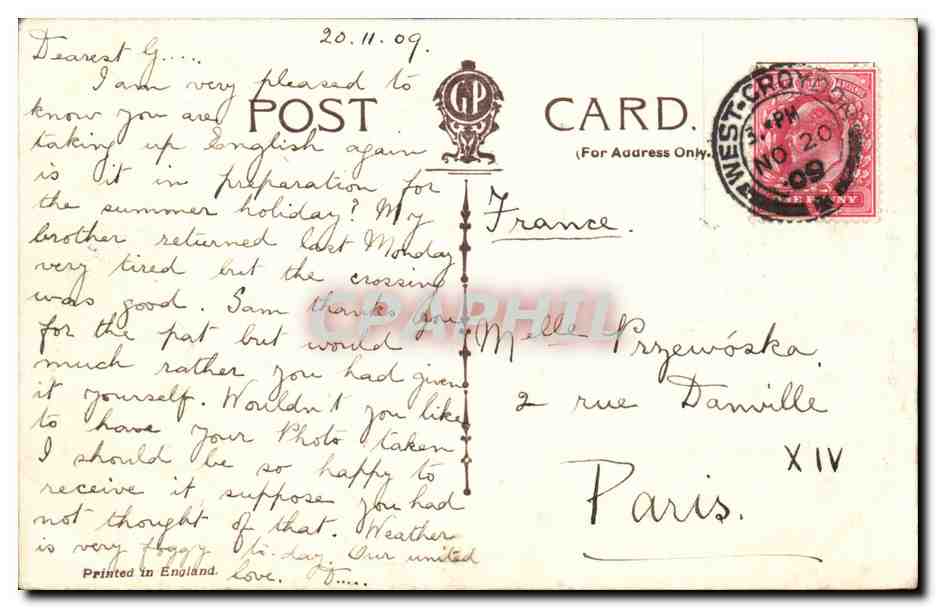 20.11.09.
Dearest G.....
I am very pleased to
know you are
taking up English again
is it in preparation for
the summer holiday? My
brother returned last Monday
very tired but the crossing
was good. Sam thanks you
for the pat but would
much rather you had given
it yourself. Wouldn't you like
to have your Photo taken
I should be so happy to
receive it suppose you had
not thought of that. Weather
is very foggy to-day. Our united
love.
Printed in England.
POST CARD.
GP
(For Address Only.)
WEST-CROYDON
PM
NO 20
09
ONE PENNY
France.
Melle Przewóska
2 rue Danville
XIV
Paris.
CPAPHIL